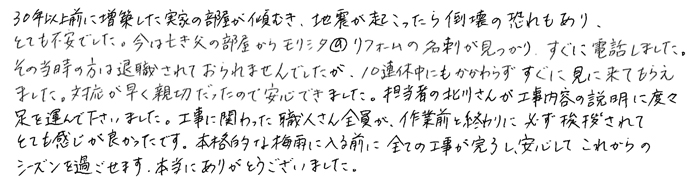 30年以上前に増築した実家の部屋が傾むき、地震が起こったら倒壊の恐れもあり、
とても不安でした。今は亡き父の部屋からモリシタ㋐リフォームの名刺が見つかり、すぐに電話しました。
その当時の方は退職されておられませんでしたが、10連休中にもかかわらずすぐに見に来てもらえ
ました。対応が早く親切だったので安心できました。担当者の北川さんが工事内容の説明に度々
足を運んで下さいました。工事に関わった職人さん全員が、作業前と終わりに必ず挨拶されて
とても感じが良かったです。本格的な梅雨に入る前に全ての工事が完了し、安心してこれからの
シーズンを過ごせます。本当にありがとうございました。